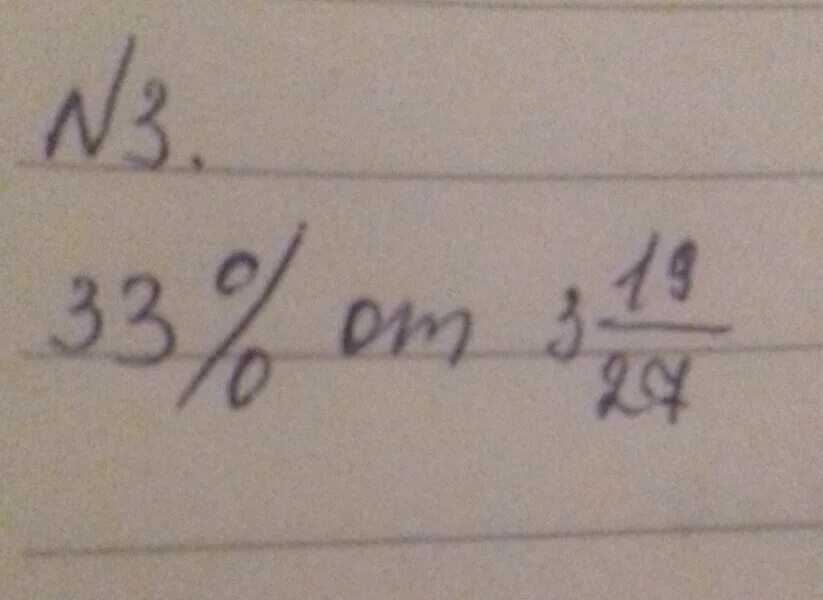 N3.
33% от 3 19/27